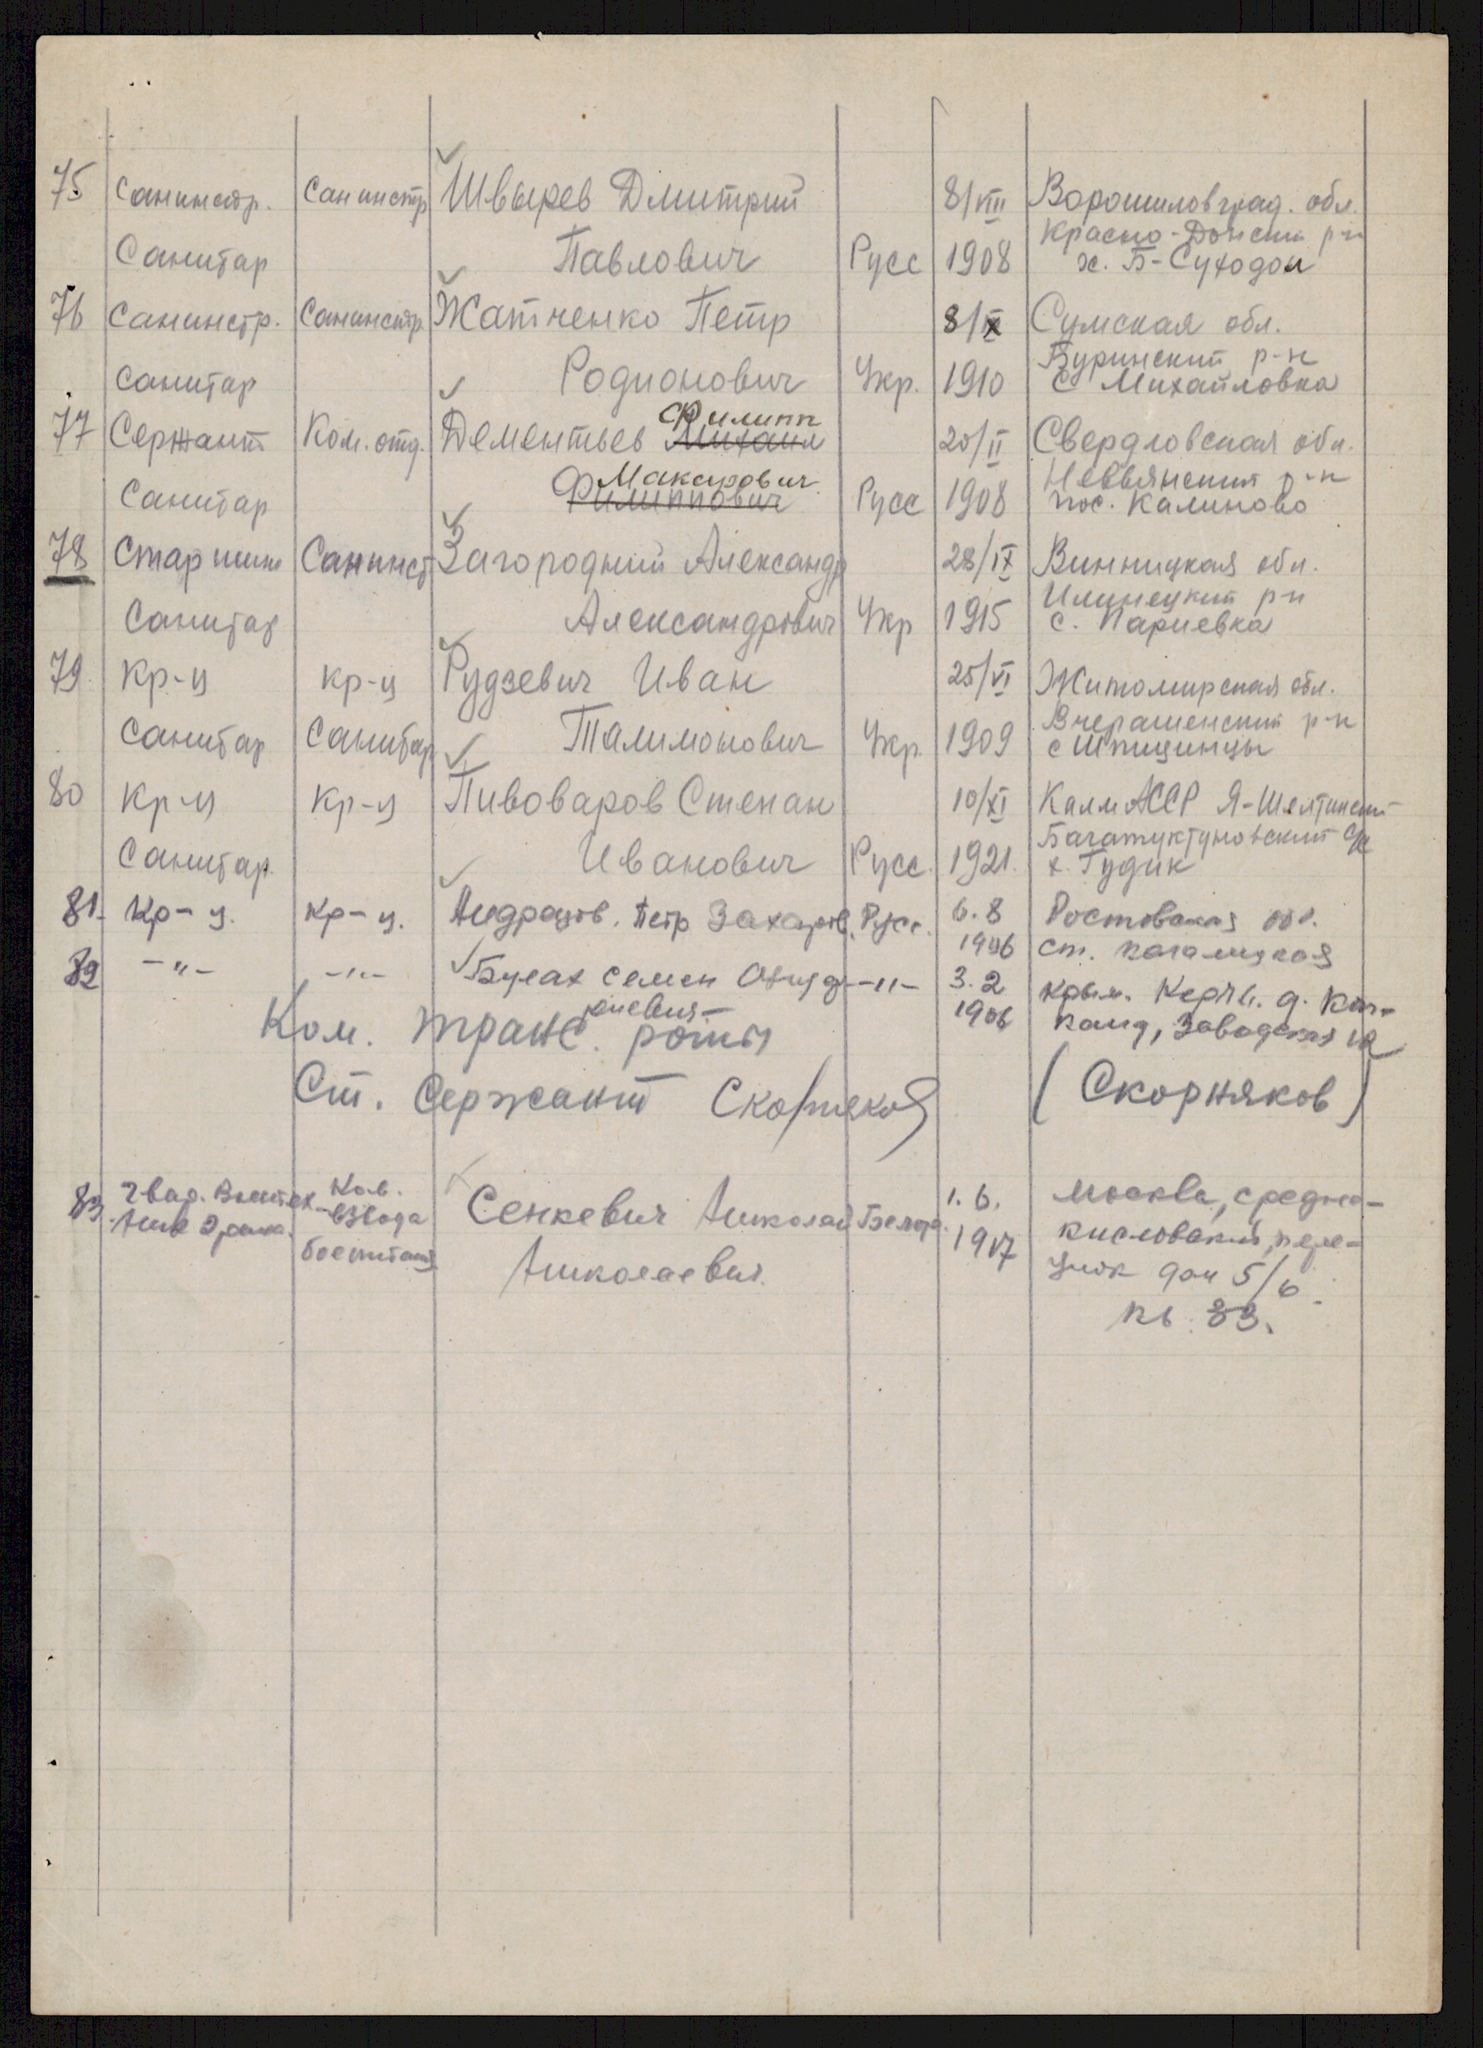 75 Санинстр. Санинстр Швырев Дмитрий 8/VIII Ворошиловград. обл.
Красно-Донски р-н
Санитар Павлович Русс 1908 х. Б-Суходол
76 Санинстр. Санинстр. Жатченко Петр 8/IX Сумская обл.
Буринский р-н
Санитар Родионович Укр. 1910 с Михайловка
Филипп
77 Сержант Ком. отд. Дементьев Михаил 20/II Свердловская обл.
Максимович Невьянский р-н
Санитар Филиппович Русс 1908 пос. Калиново
78 Старшина Санинст Загородний Александр 28/IX Винницкая обл.
Илинецкий р-н
Санитар Александрович Укр 1915 с. Париевка
79 Кр-ц кр-ц Рудзевич Иван 25/VI Житомирская обл.
Вчерашенский р-н
Санитар Санитар Талимонович Укр. 1909 с Шпичинцы
80 Кр-ц Кр-ц Пивоваров Степан 10/XI Калм АССР Я-Шелтинский
Багатуктуновский
Санитар. Иванович Русс. 1921. х. Гудик
81. Кр-ц. Кр-ц. Петр Захаров. Русс. 6.8 Ростовская обл.
1906 ст. Кагальницкая
82 -"- -"- Булах Семен -"- 3.2 Крым. Керчь.
1906 Заводская
Ком. транс. роты
Ст. Сержант Скорняков (Скорняков)
83. Гвар. Ком. Сенкевич Николай Белор. 1.6. Москва, средне-
взвода 1917 кисловский, пере-
Николаевич. улок дом 5/6.
кв. 33.